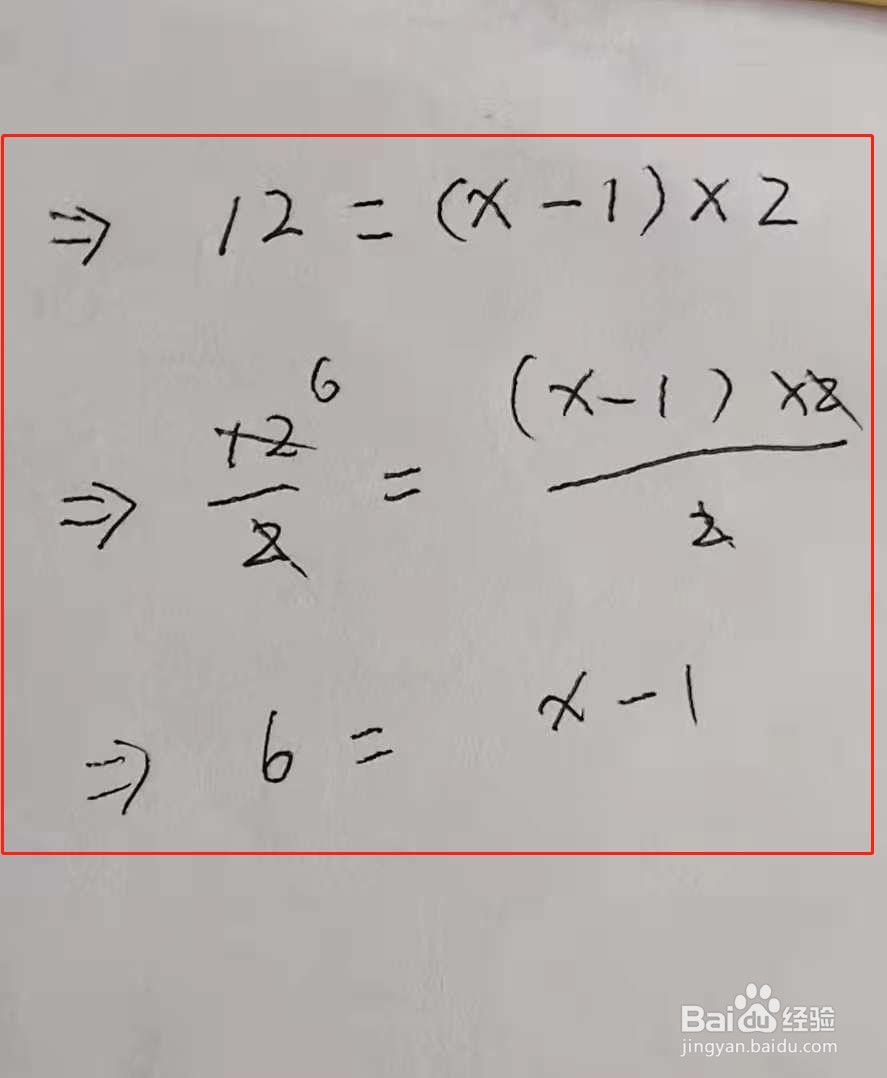 ⇒ 12 = (x - 1) × 2
⇒ 12/2 6 = (x - 1) × 2/2
⇒ 6 = x - 1
Baidu经验
jingyan.baidu.com